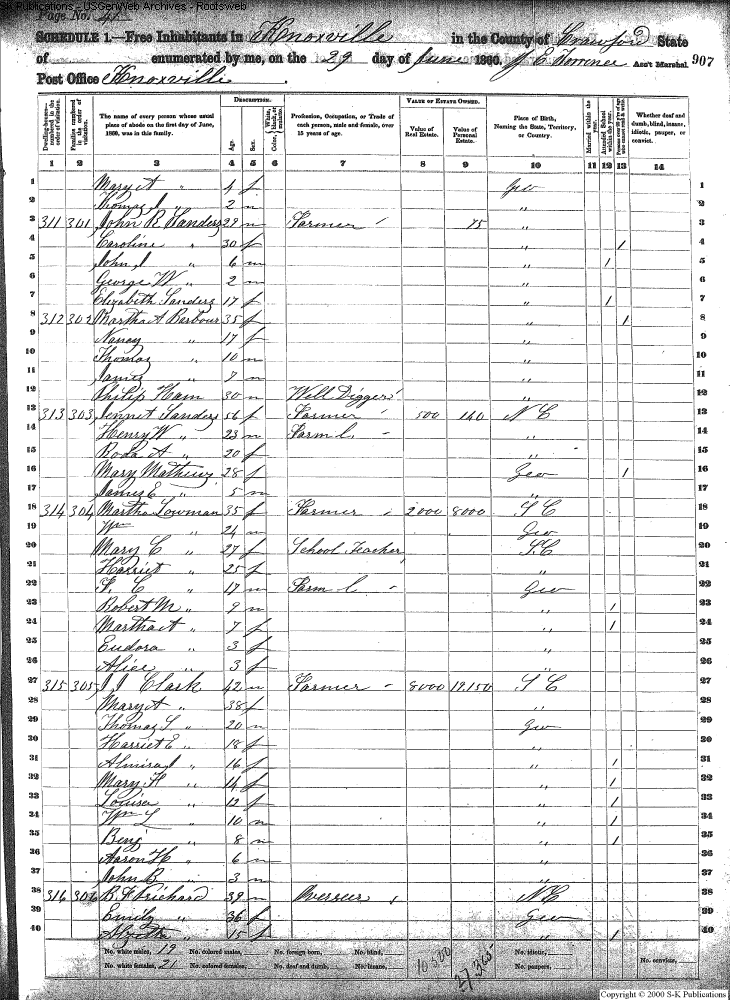 S-K Publications - USGenWeb Archives - Rootsweb
Page No. 41
SCHEDULE 1.—Free Inhabitants in Knoxville in the County of Crawford State
of enumerated by me, on the 29 day of June 1860. J E Torrence Ass't Marshal. 907
Post Office Knoxville.
Dwelling-houses—numbered in the order of visitation. Families numbered in the order of visitation. The name of every person whose usual place of abode on the first day of June, 1860, was in this family. DESCRIPTION. Age. Sex. Color, White, black, or mulatto. Profession, Occupation, or Trade of each person, male and female, over 15 years of age. VALUE OF ESTATE OWNED. Value of Real Estate. Value of Personal Estate. Place of Birth, Naming the State, Territory, or Country. Married within the year. Attended School within the year. Persons over 20 y'rs of age who cannot read & write. Whether deaf and dumb, blind, insane, idiotic, pauper, or convict.
1 2 3 4 5 6 7 8 9 10 11 12 13 14
1 Mary A " 4 f Geo 1
2 Thomas J " 2 m " 2
3 311 301 John R Sanders 29 m Farmer 75 " 3
4 Caroline " 30 f " / 4
5 John J " 6 m " / 5
6 George W " 2 m " 6
7 Elizabeth Sanders 17 f " / 7
8 312 302 Martha A Barbour 35 f " / 8
9 Nancy " 17 f " 9
10 Thomas " 10 m " 10
11 James " 7 m " 11
12 Philip Ham 30 m Well Digger " 12
13 313 303 Jennet Sanders 56 f Farmer 500 140 N C 13
14 Henry W " 23 m Farm L. " 14
15 Roda A " 20 f " 15
16 Mary Mathews 28 f Geo / 16
17 James E " 5 m " 17
18 314 304 Martha Lowman 35 f Farmer 2000 8000 S C 18
19 Wm " 24 m Geo 19
20 Mary C " 27 f School Teacher S.C 20
21 Harriet " 25 f " 21
22 F. C " 17 m Farm L Geo 22
23 Robert M " 9 m " / 23
24 Martha A " 7 f " / 24
25 Eudora " 3 f " 25
26 Alice " 3 f " 26
27 315 305 J J Clark 42 m Farmer 8000 17,150 S C 27
28 Mary A " 38 f " 28
29 Thomas S " 20 m Geo 29
30 Harriet E " 18 f " 30
31 Almira J " 16 f " / 31
32 Mary H " 14 f " / 32
33 Louisa " 12 f " / 33
34 Wm L " 10 m " / 34
35 Benj " 8 m " / 35
36 Aaron H " 6 m " 36
37 John B " 3 m " 37
38 316 306 B F Prichard 39 m Overseer N C 38
39 Emily " 36 f Geo 39
40 15 f " / 40
No. white males, 19 No. colored males, No. foreign born, No. blind, No. idiotic, No. convicts,
No. white females, 21 No. colored females, No. deaf and dumb, No. insane, 10500 27,365 No. paupers,
Copyright © 2000 S-K Publications